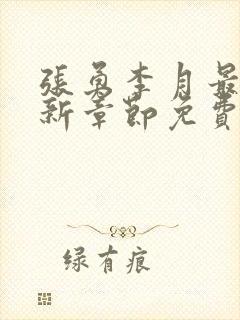 張勇李月最
新章節免費
绿有痕